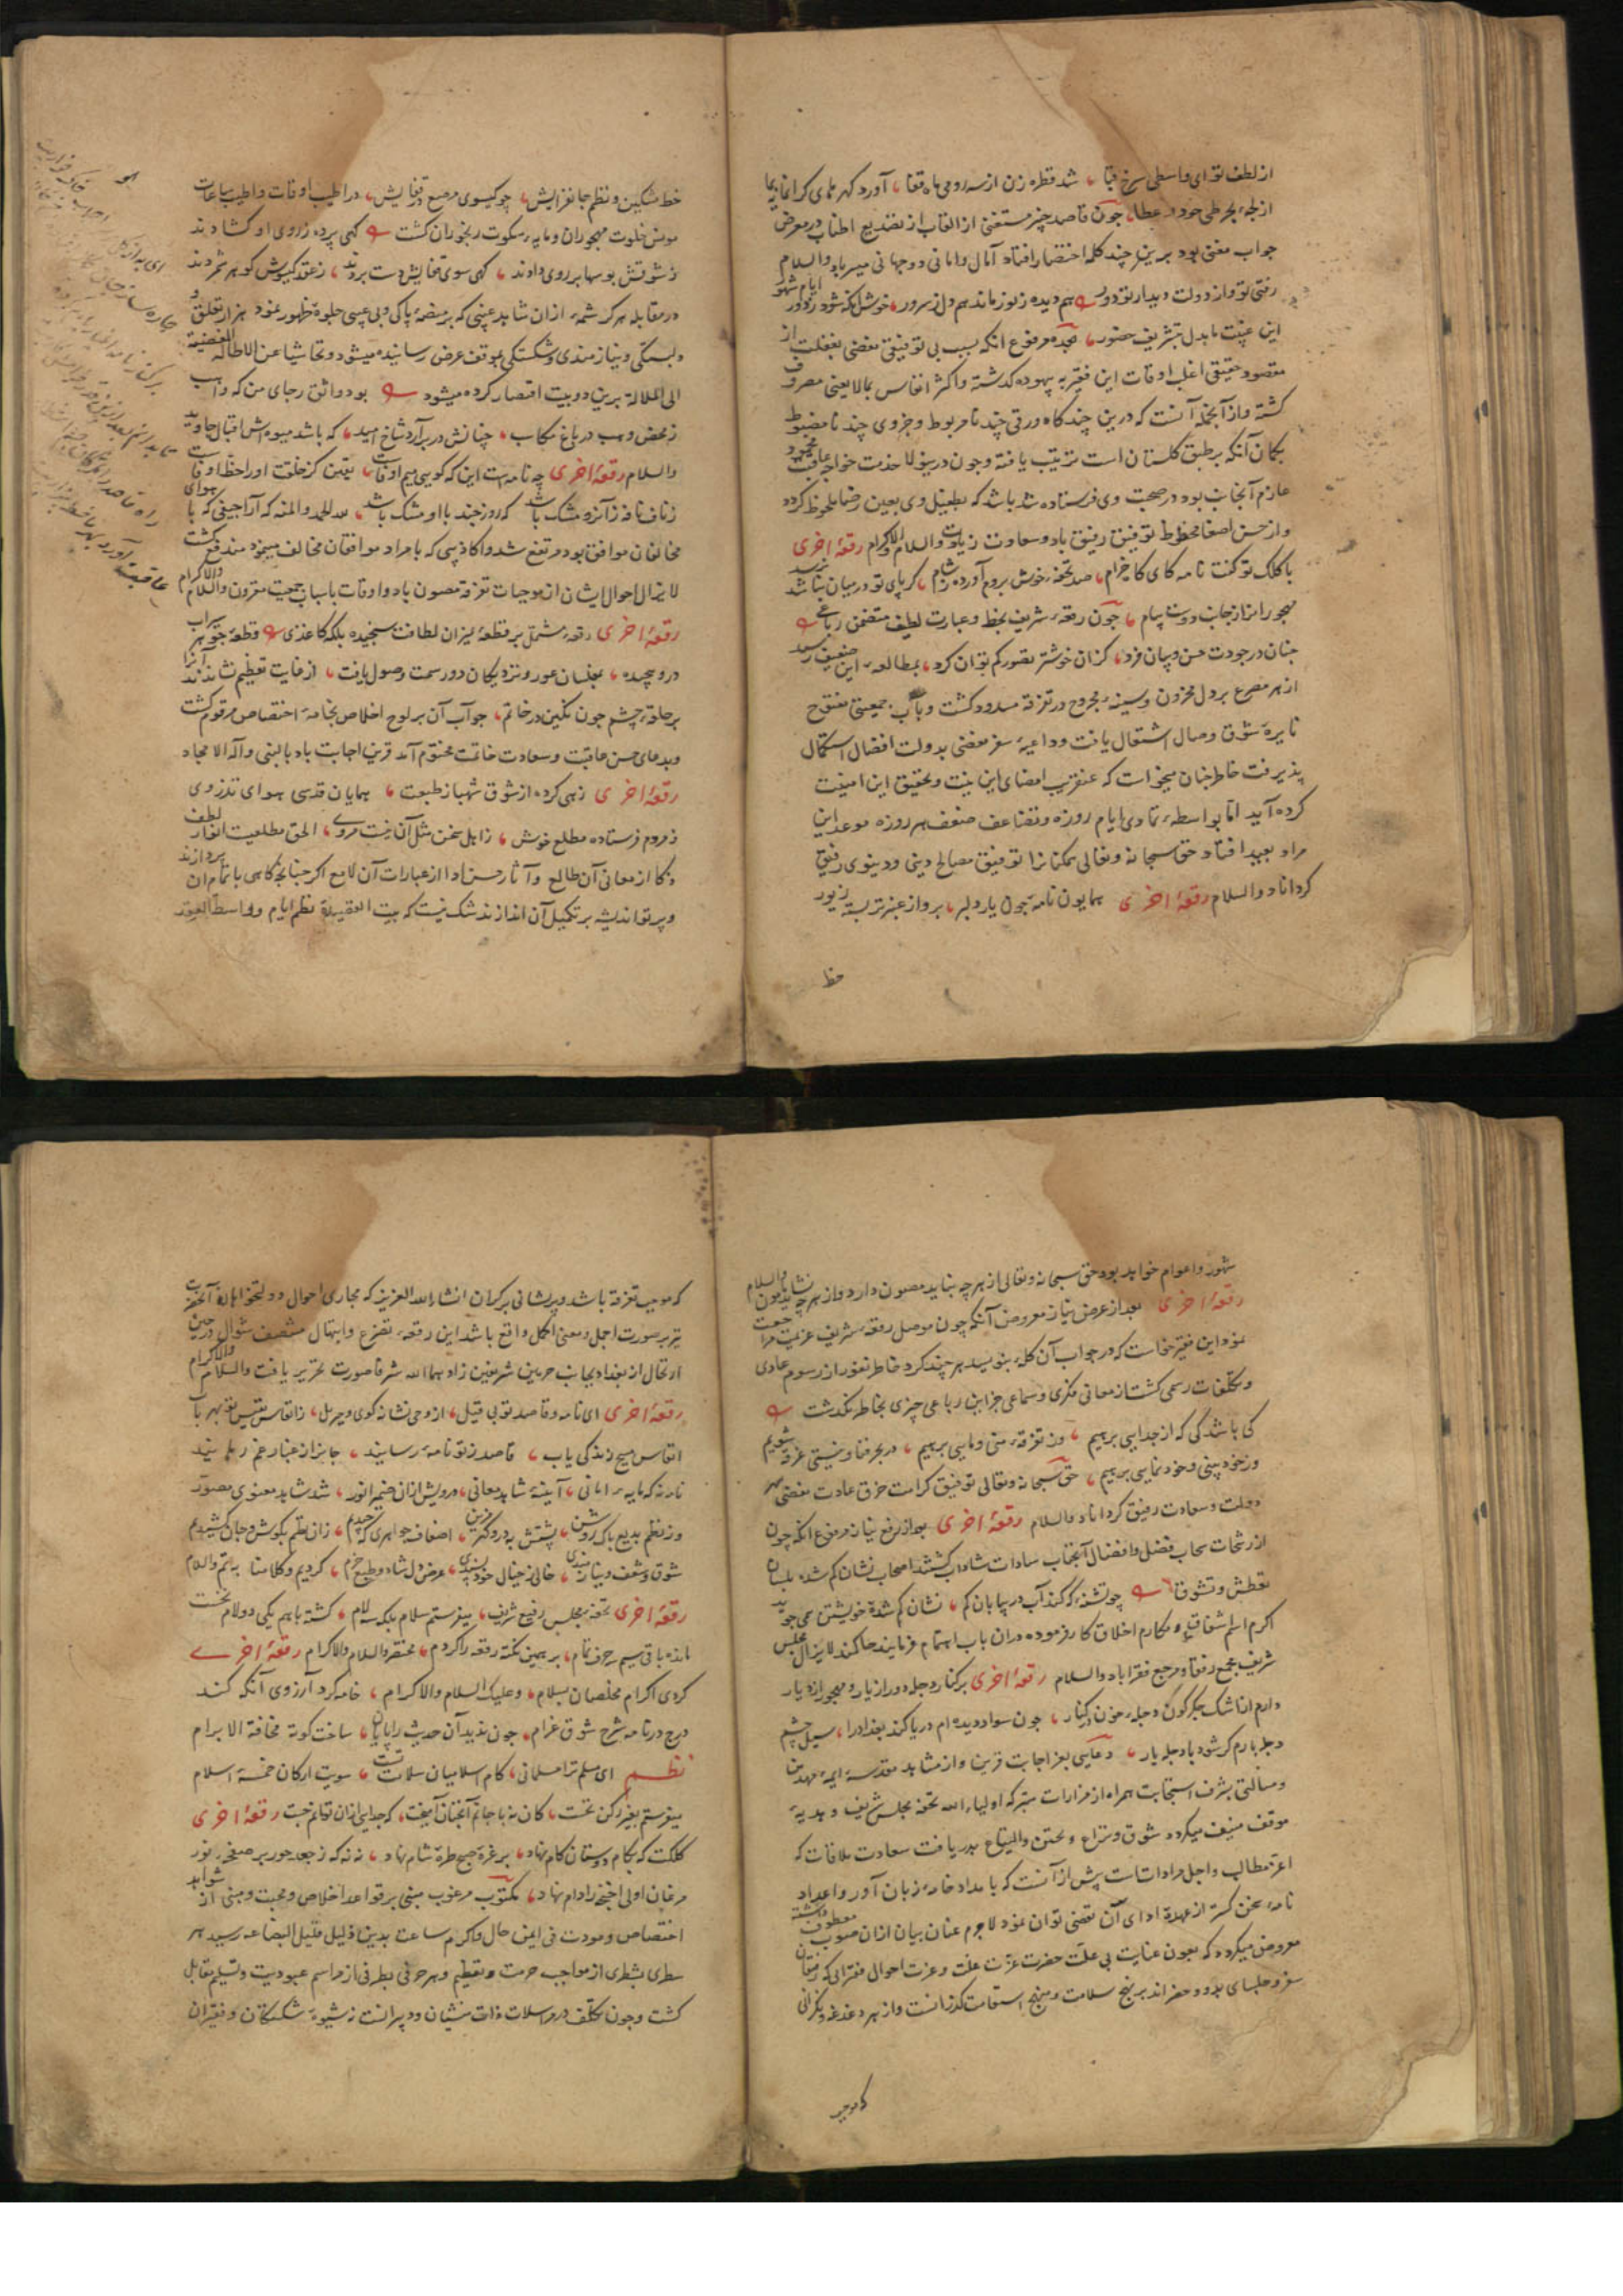 از لطف تو ای واسطی سرخ قبا شد قطره زن از سه رومی ماه قفا آورد گهرهای گرانمایه
از لجهٔ بحر طی جود و عطا چون قاصد چیز مستغنی از القاب از تصدیع اطناب در معرض
جواب مغنی بود برین چند کلمه اختصار افتاد آمال و امانی دو جهانی میسر باد والسلام
رفتی تو و از دولت دیدار تو دور هم دیده ز نور ماند هم دل ز سرور خوش آنکه شود زود در ایام شهور
این غیبت ما بدل بتشریف حضور بعده مرفوع آنکه بسبب بی توفیقی مفضی بغفلت از
مقصود حقیقی اغلب اوقات این فقیر به بیهوده گذشته و اکثر انفاس بمالایعنی مصروف
گشته و از آنجمله آنست که درین چند گاه ورقی چند نامربوط و جزوی چند نامضبوط
بکمان آنکه بر طبق گلستان است ترتیب یافته و چون درینولا خدمت خواجه عاقبت محمود
عازم آنجانب بود در صحبت وی فرستاده شد باشد که بطفیل وی بعین رضا ملحوظ گردد
و از حسن اصغا محظوظ توفیق رفیق باد و سعادت زیادت والسلام والاکرام رقعهٔ اخری
با کلک تو گفت نامه کای گاه خرام صد تحفهٔ خوش بروم آورده ز شام گر پای تو در میان نباشد نرسد
مهجورانرا ز جانب دوست پیام چون رقعهٔ شریف بخط و عبارت لطیف متضمن رباعی
چنان در جودت حسن و بیان فرد کزان خوشتر تصور کم توان کرد بمطالعهٔ این ضعیف رسید
از هر مصرع بر دل محزون و سینهٔ مجروح در تفرقه مسدود گشت و باب جمعیتی مفتوح
نایرهٔ شوق وصال اشتعال یافت و داعیهٔ سفر مفضی بدولت افضال استکمال
پذیرفت خاطر چنان میخواست که عنقریب امضای این نیت و تحقیق این امنیت
کرده آید اما بواسطهٔ تمادی ایام روزه و تضاعف ضعف هر روزه موعد این
مراد بعید افتاد حق سبحانه و تعالی همکنانرا توفیق مصالح دینی و دنیوی رفیق
گرداناد والسلام رقعهٔ اخری همایون نامهٔ چون یار دلبر برو از عنبر تر بسته زیور
خط
خط مشکین و نظم جانفزایش چو گیسوی مرصع در قفایش در اطیب اوقات و اطیب ساعات
مونس خلوت مهجوران و مایهٔ سکوت رنجوران گشت گهی پرده ز روی او گشادند
ز شوقش بوسها بر روی دادند گهی سوی قفایش دست بردند ز عقد گیسوش گوهر شمردند
در مقابلهٔ هر کرشمه از آن شاهد غیبی که بر منصهٔ پاکی و بی عیبی جلوهٔ ظهور نمود هزار تعلق و
دلبستگی و نیازمندی و شکستگی بموقف عرض رسانیده میشود و تحاشیا عن الاطالة المفضیة
الی الملالة برین دو بیت اقتصار کرده میشود بود واثق رجای من که واهب
ز محض وهب در باغ مکاسب چنانش در بر آرد شاخ امید که باشد میوه‌اش اقبال جاوید
والسلام رقعهٔ اخری چه نامه‌ست این که گویی میم اوقات یقین کز خلقت او را حظ اوقات
ز ناف نافه ز آنرو مشک باشد که روز چند با او مشک باشد لله الحمد والمنه که اراجیفی که با هوای
مخالفان موافق بود مرتفع شد و اکاذیبی که با مراد موافقان مخالف مینمود مندفع گشت
لایزال احوال ایشان از موجبات تفرقه مصون باد و اوقات باسباب جمعیت مقرون والسلام والاکرام
رقعهٔ اخری رقعهٔ مشتمل بر قطعهٔ بمیزان لطافت سنجیده بلکه کاغذی قطعهٔ جوهر سیراب
درو پیچیده بمجلسان عور و نزدیکان دور سمت وصول یافت از غایت تعظیم نشاندند آنرا
بر حلقهٔ چشم چون نگین در خاتم جواب آن بر لوح اخلاص بخامهٔ اختصاص مرقوم گشت
و بدعای حسن عاقبت و سعادت خاتمت مختوم آمد قرین اجابت باد بالنبی و آله الامجاد
رقعهٔ اخری زهی کرده از شوق شهباز طبعت همایان قدسی هوای تذروی
ز مردم فرستاده مطلع خوش ز اهل سخن مثل آن نیست مروی الحق مطلعیست انوار لطف
و ذکا از معانی آن طالع و آثار حسن ادا از عبارات آن لامع اگر چنانچه گاهی باتمام آن پردازند
و پرتو اندیشه بر تکمیل آن اندازند شک نیست که بیت القصیدهٔ نظم ایام و واسطة العقد
شهور و اعوام خواهد بود حق سبحانه و تعالی از هر چه نباید مصون دارد و از هر چه نشاید مامون والسلام
رقعهٔ اخری بعد از عرض نیاز معروض آنکه چون موصل رقعهٔ شریف عزیمت مراجعت
نمود این فقیر خواست که در جواب آن کلمهٔ بنویسد هر چند کرد خاطر نفور از رسوم عادی
و تکلفات رسمی گشت از معانی فکری و سماعی جز این رباعی چیزی بخاطر نگذشت
کی باشد کی که از جدایی برهیم وز تفرقهٔ منی و مایی برهیم در بحر فنا و نیستی غرقه شویم
وز خود بینی و خودنمایی برهیم حق سبحانه و تعالی توفیق کرامت خرق عادت مفضی بهر
دولت و سعادت رفیق گرداناد والسلام رقعهٔ اخری بعد از رفع نیاز مرفوع آنکه چون
از رشحات سحاب فضل و افضال آنجناب سادات شاداب گشتند اصحاب نشان گم شده بلسان
تعطش و تشوق چو تشنه کو کند آب در بیابان گم نشان گم شدهٔ خویشتن همی جوید
اکرم اسلم اشفاق و مکارم اخلاق کار فرموده در آن باب اهتمام فرمایند حاکمند لایزال مجلس
شریف مجمع رفقا و مرجع فقرا باد والسلام رقعهٔ اخری بر کنار دجله دور از یار و مهجور از دیار
دارم از اشک جگرگون دجلهٔ خون در کنار چون سواد دیده‌ام دریا کند بغداد را سیل چشم
دجله بارم گر شود با دجله یار دعایی بعز اجابت قرین و از مشاهد مقدسهٔ ایمهٔ مهدیین
و مسألتی بشرف استجابت همراه از مزارات متبرکهٔ اولیاء الله تحفهٔ مجلس شریف و هدیهٔ
موقف منیف میگردد شوق و نزاع و تحنن و التیاع بدریافت سعادت ملاقات که
اعز مطالب و اجل مرادات است پیش از آنست که بامداد خامهٔ زبان آور و اعداد
نامهٔ سخن گستر از عهدهٔ ادای آن تفصی توان نمود لاجرم عنان بیان از آن صوب معطوف داشته
معروض میگردد که بعون عنایت بی علت حضرت عزت علت و عزت احوال فقرایی که رفیقان
سفر و جلسای بدو و حضر اند بر نهج سلامت و منهج استقامت گذرانست و از هر دغدغه و نگرانی
که موجب
که موجب تفرقه باشد و پریشانی بر کران انشاء الله العزیز که مجاری احوال دولتخواهان آنحضرت
نیز بر صورت اجمل و معنی اکمل واقع باشد این رقعهٔ تضرع و ابتهال منتصف شوال در حین
ارتحال از بغداد بجانب حرمین شریفین زادهما الله شرفا صورت تحریر یافت والسلام والاکرام
رقعهٔ اخری ای نامه و قاصد تو بی قیل از وحی نشانه گوی و جبریل ز انفاس نفیس تو بهر باب
انفاس مسیح زندگی یاب قاصد ز تو نامهٔ رسانید جانرا ز غبار غم رهانید
نامه نه که مایهٔ امانی آیینهٔ شاهد معانی هر رویش از آن ضمیر انور شد شاهد معنوی مصور
وز نظم بدیع پاک روشن پشتش بدرو گهر مزین اصناف جواهری که چیدم زان نظم بگوش و جان کشیدم
شوق و شعف و نیازمندی خالی ز خیال خودپسندی عرض دل شاد و طبع خرم کردیم و کلامنا به تم والسلام
رقعهٔ اخری تحفهٔ مجلس رفیع شریف میفرستم سلام بلکه سه لام گشته با هم یکی دو لام نخست
مانده باقی سیم حرف تمام بر همین نکته رقعه را کردم مختصر والسلام والاکرام رقعهٔ اخری
کردی اکرام مخلصان بسلام وعلیک السلام والاکرام خامه کرد آرزوی آنکه کند
درج در نامه شرح شوق غرام چون ندید آن حدیث را پایان ساخت کوته مخافة الابرام
نظم ای مسلم ترا مسلمانی کام اسلامیان سلامت تست سویت ارکان خمسهٔ اسلام
میفرستم بغیر رکن نخست کان نه با جانم آنچنان آمیخت که جدایی از آن توانم جست رقعهٔ اخری
کلکت که بکام دوستان گام نهاد بر غرهٔ صبح طرهٔ شام نهاد نه نه که ز جعد حور بر صفحهٔ نور
مرغان اولی اجنحه را دام نهاد مکتوب مرغوب مبنی بر قواعد اخلاص و محبت و منبی از شواهد
اختصاص و مودت در ایمن حال و اکرم ساعت بدین ذلیل قلیل البضاعه رسید هر
سطری بشطری از مواجب حرمت و تعظیم و هر حرفی بطرفی از مراسم عبودیت و تسلیم مقابل
گشت و چون تکلف در مراسلات دأب منشیان و دبیرانست نه شیوهٔ شکستگان و فقیران